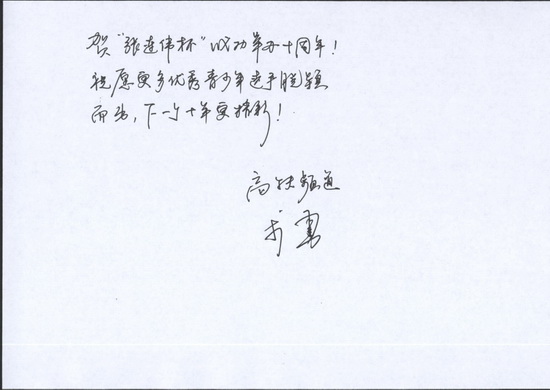 贺“张连伟杯”成功举办十周年！
祝愿更多优秀青少年选手脱颖
而出，下一个十年更精彩！
高尔夫频道
勇